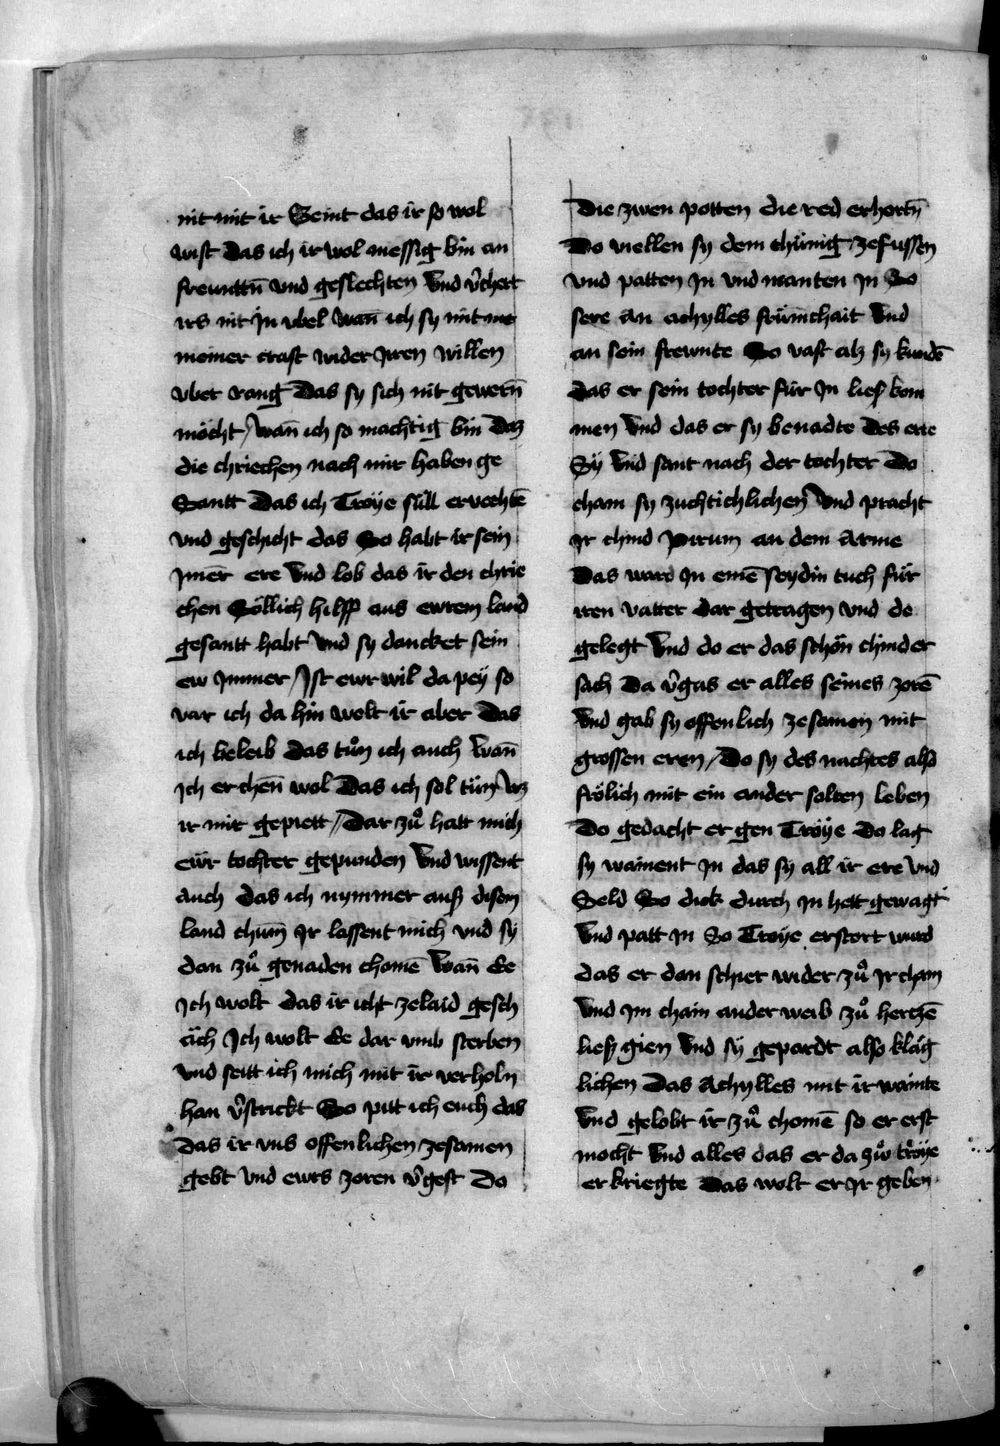 nit mit ir Seint das ir so wol
wist das ich ir wol messig bin an
freuntñ vnd geslechten Vnd v̄chert
irs nit Jn vbel Wañ ich sy mit
meiner craft wider Jren willen
vber rang Das sy sich nit gewerñ
möcht / Wañ ich so machtig bin Daz
die chriechen nach mir haben ge
Santt Das ich Troye süll ervechtē
vnd geschicht das So habt ir sein
Jmer ere Vnd lob das ir den chrie
chen Söllich hilff aus ewrem land
gesantt habt Vnd sy dancket sein
ew Jmmer / Jst ewr wil da pey so
var ich da hin welt ir aber Das
ich beleib Das tůn ich auch Wañ
Jch ercheñ wol Das ich sol tün Wz
ir mir gepiett / Dar zů hatt mich
eẅr tochter gepunden Vnd wissent
auch das ich nymmer auß disem
land chum̄ Jr lassent mich vnd sy
dan zů genaden chomē Wañ Ee
Jch wolt das ir icht zelaid gesch
äch Jch wolt Ee dar vmb sterben
vnd seitt ich mich mit ir verholn
han v̄strickt So pitt ich euch das
Das ir vns offenlichen zesamen
gebt vnd ewrs zoren v̄gest Do
Die zwen potten die red erhortñ
Do viellen sy dem chünig zefussen
vnd patten Jn vnd manten Jn So
sere an achylles frümchait Vnd
an sein frewnte So vast alz sy kundē
das er sein tochter für Jn ließ kom
men Vnd das er sy benadte Des erte
Sy Vnd sant nach der tochter Do
cham sy zuchtichlichen Vnd pracht
Jr chind Pirum an dem Arme
Das ward Jn einē seydin tuch für
iren vatter dar getragen vnd do
gelegt Vnd do er das schön chinder
sach Da v̄gas er alles seines zorē
Vnd gab sy offenlich zesamen mit
grossen eren / Do sy des nachtes also
frölich mit ein ander solten leben
Do gedacht er gen Troye Do lag
sy wainent Jn das sy all ir ere Vnd
Seld So dick durch Jn hett gewagt
Vnd patt Jn So Troye erstort wurd
das er dan schier wider zů Jr cham
Vnd Jm chain ander weib zů hertzē
ließ gien Vnd sy gepardt also kläg
lichen Das Achylles mit ir wainte
Vnd gelobt ir zů chomē so er erst
mocht Vnd alles das er da zů troye
er kriegte Das wolt er Jr geben